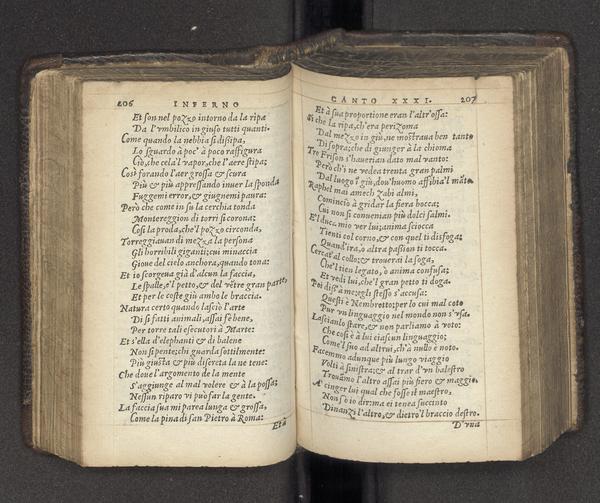 206 INFERNO
Et son nel pozzo intorno da la ripa
Da l'vmbilico in giuso tutti quanti.
Come quando la nebbia si disipa,
Lo sguardo à poc' à poco raffigura
Ciò, che cela'l vapor, che l'aere stipa;
Così forando l'aer grossa & scura
Più & più appressando inuer la sponda
Fuggemi error, & giugnemi paura:
Però che come in su la cerchia tonda
Montereggion di torri si corona;
Così la proda, che'l pozzo circonda,
Torreggiauan di mezza la persona
Gli horribili giganti; cui minaccia
Gioue del cielo anchora, quando tona:
Et io scorgena già d'alcun la faccia,
Le spalle, e'l petto, & del vētre gran parte,
Et per le coste giù ambo le braccia.
Natura certo quando lasciò l'arte
Di sì fatti animali, assai fè bene,
Per torre tali esecutori à Marte:
Et s'ella d'elephanti & di balene
Non si pente; chi guarda sottilmente
Più giusta & più discreta la ne tene:
Che doue l'argomento de la mente
S'aggiunge al mal volere & à la possa;
Nessun riparo vi può far la gente.
La faccia sua mi parea lunga & grossa,
Come la pina di san Pietro à Roma:
Età
CANTO XXXI. 207
Et à sua proportione eran l'altr'ossa:
Si che la ripa, ch'era perizoma
Dal mezzo in giù, ne mostraua ben tanto
Di sopra; che di giunger à la chioma
Tre Frison s'hauerian dato mal vanto:
Però ch'i ne vedea trenta gran palmi
Dal luogo in giù, dou'huomo affibbia'l māto.
Raphel mai amech zabi almi,
Cominciò à gridar la fiera bocca;
Cui non si conuenian più dolci salmi.
E'l duca mio ver lui; anima sciocca
Tienti col corno, & con quel ti disfoga;
Quand'ira, o altra passion ti tocca.
Cercat'al collo; & trouerai la soga,
Che'l tien legato, ò anima confusa;
Et vedi lui, che'l gran petto ti doga.
Poi diss'a me; egli stesso s'accusa:
Questi è Nembrotto; per lo cui mal coto
Pur vn linguaggio nel mondo non s'vsa.
Lascianlo stare, & non parliamo à voto:
Che così è à lui ciascun linguaggio;
Come'l suo ad altrui, ch'à nullo è noto.
Facemmo adunque più lungo viaggio
Volti à sinistra; & al trar d'vn balestro
Trouāmo l'altro assai più fiero & maggio.
A' cinger lui qual che fosse il maestro,
Non so io dir: ma ei tenea succinto
Dinanzi l'altro, & dietro'l braccio destro.
D'vna